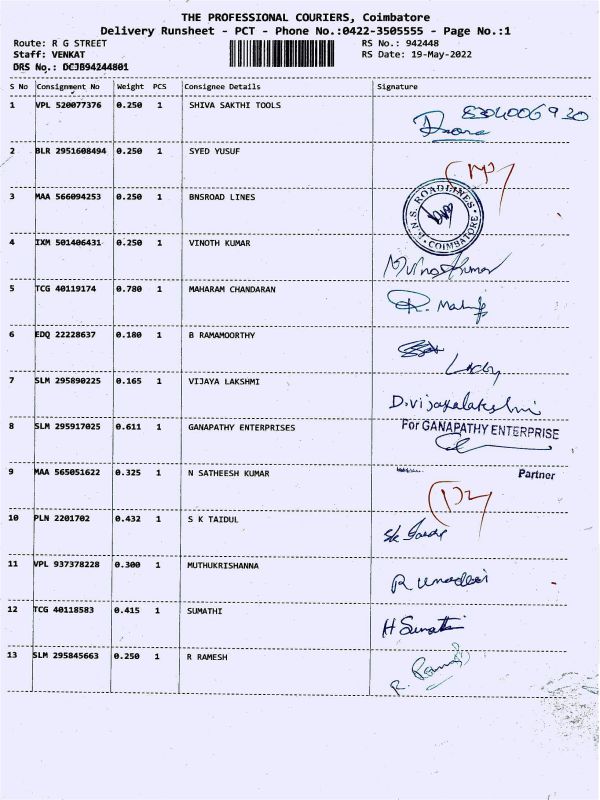 THE PROFESSIONAL COURIERS, Coimbatore
Delivery Runsheet - PCT - Phone No.:0422-3505555 - Page No.:1
Route: R G STREET RS No.: 942448
Staff: VENKAT RS Date: 19-May-2022
DRS No.: DCJB94244801
S No Consignment No Weight PCS Consignee Details Signature
1 VPL 520077376 0.250 1 SHIVA SAKTHI TOOLS 8304006930
2 BLR 2951608494 0.250 1 SYED YUSUF
3 MAA 566094253 0.250 1 BNSROAD LINES
B.N.S. ROADLINES * COIMBATORE *
4 IXM 501406431 0.250 1 VINOTH KUMAR
M Vinoth Kumar
5 TCG 40119174 0.780 1 MAHARAM CHANDARAN
6 EDQ 22228637 0.180 1 B RAMAMOORTHY
7 SLM 295890225 0.165 1 VIJAYA LAKSHMI
D.vijayalakshmi
8 SLM 295917025 0.611 1 GANAPATHY ENTERPRISES For GANAPATHY ENTERPRISE
9 MAA 565051622 0.325 1 N SATHEESH KUMAR Partner
10 PLN 2201702 0.432 1 S K TAIDUL
11 VPL 937378228 0.300 1 MUTHUKRISHANNA
R Umadevi
12 TCG 40118583 0.415 1 SUMATHI
H Sumathi
13 SLM 295845663 0.250 1 R RAMESH